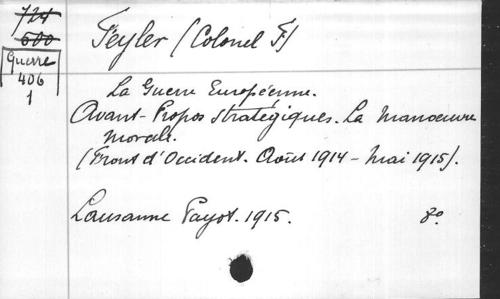 724
600
Guerre
406
1
Feyler (Colonel F)
La Guerre Européenne.
Avant-Propos stratégiques. La Manoeuvre
morale.
(Front d'Occident. Août 1914 - Mai 1915).
Lausanne Payot. 1915. 8º